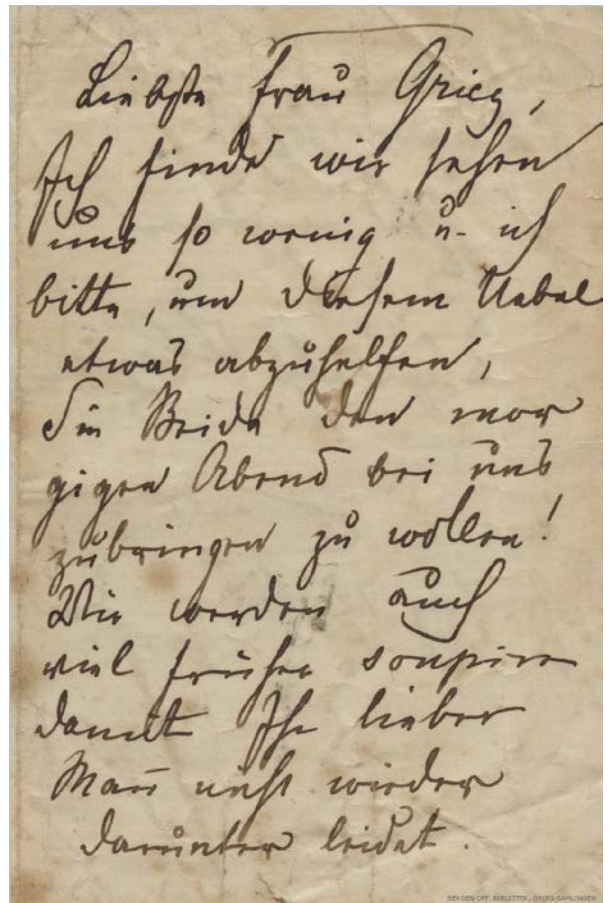 Liebste Frau Grieg,
Ich finde wir sehen
uns so wenig u. ich
bitte, um diesem Uebel
etwas abzuhelfen,
Sie Beide den mor
gigen Abend bei uns
zubringen zu wollen!
Wir werden auch
viel früher soupiren
damit Ihr lieber
Mann nicht wieder
darunter leidet.
BERGEN OFF. BIBLIOTEK, GRIEG-SAMLINGEN